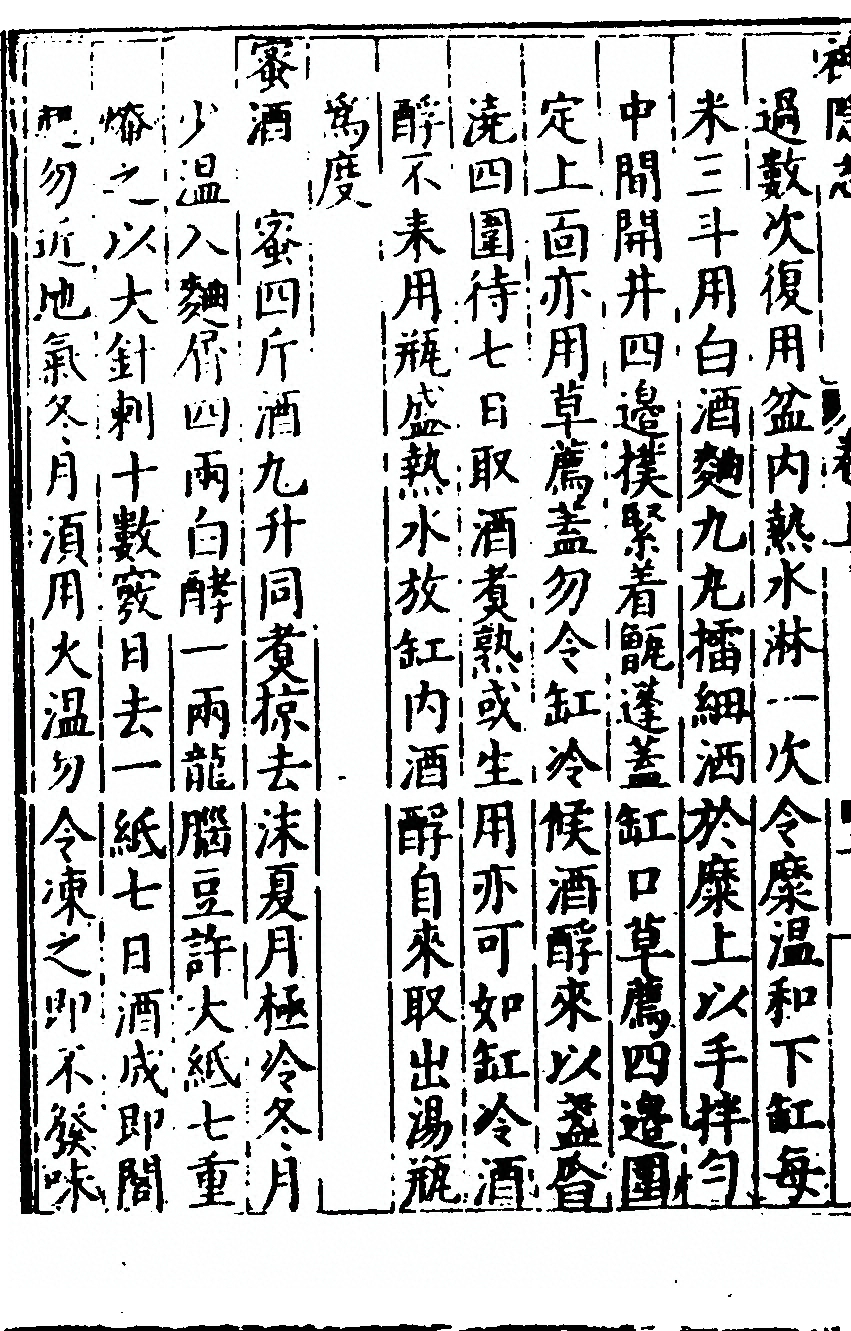 過數次復用盆内熱水淋一次令糜温和下缸每
米三斗用白酒麯九丸擂細洒於糜上以手拌勻
中間開井四邉撲緊着甑蓬蓋缸口草薦四邉圍
定上面亦用草薦蓋勿令缸冷候酒醇來以盞舀
澆四圍待七日取酒煮熟或生用亦可如缸冷酒
醇不来用瓶盛熱水放缸内酒醇自來取出湯瓶
爲度
蜜酒　蜜四斤酒九升同煮掠去沫夏月極冷冬月
少温入麯𠈉四兩白酵一兩龍腦豆許大紙七重
幞之以大針刺十數竅日去一紙七日酒成即閣
起勿近地氣冬月湏用火温勿令凍之即不發味